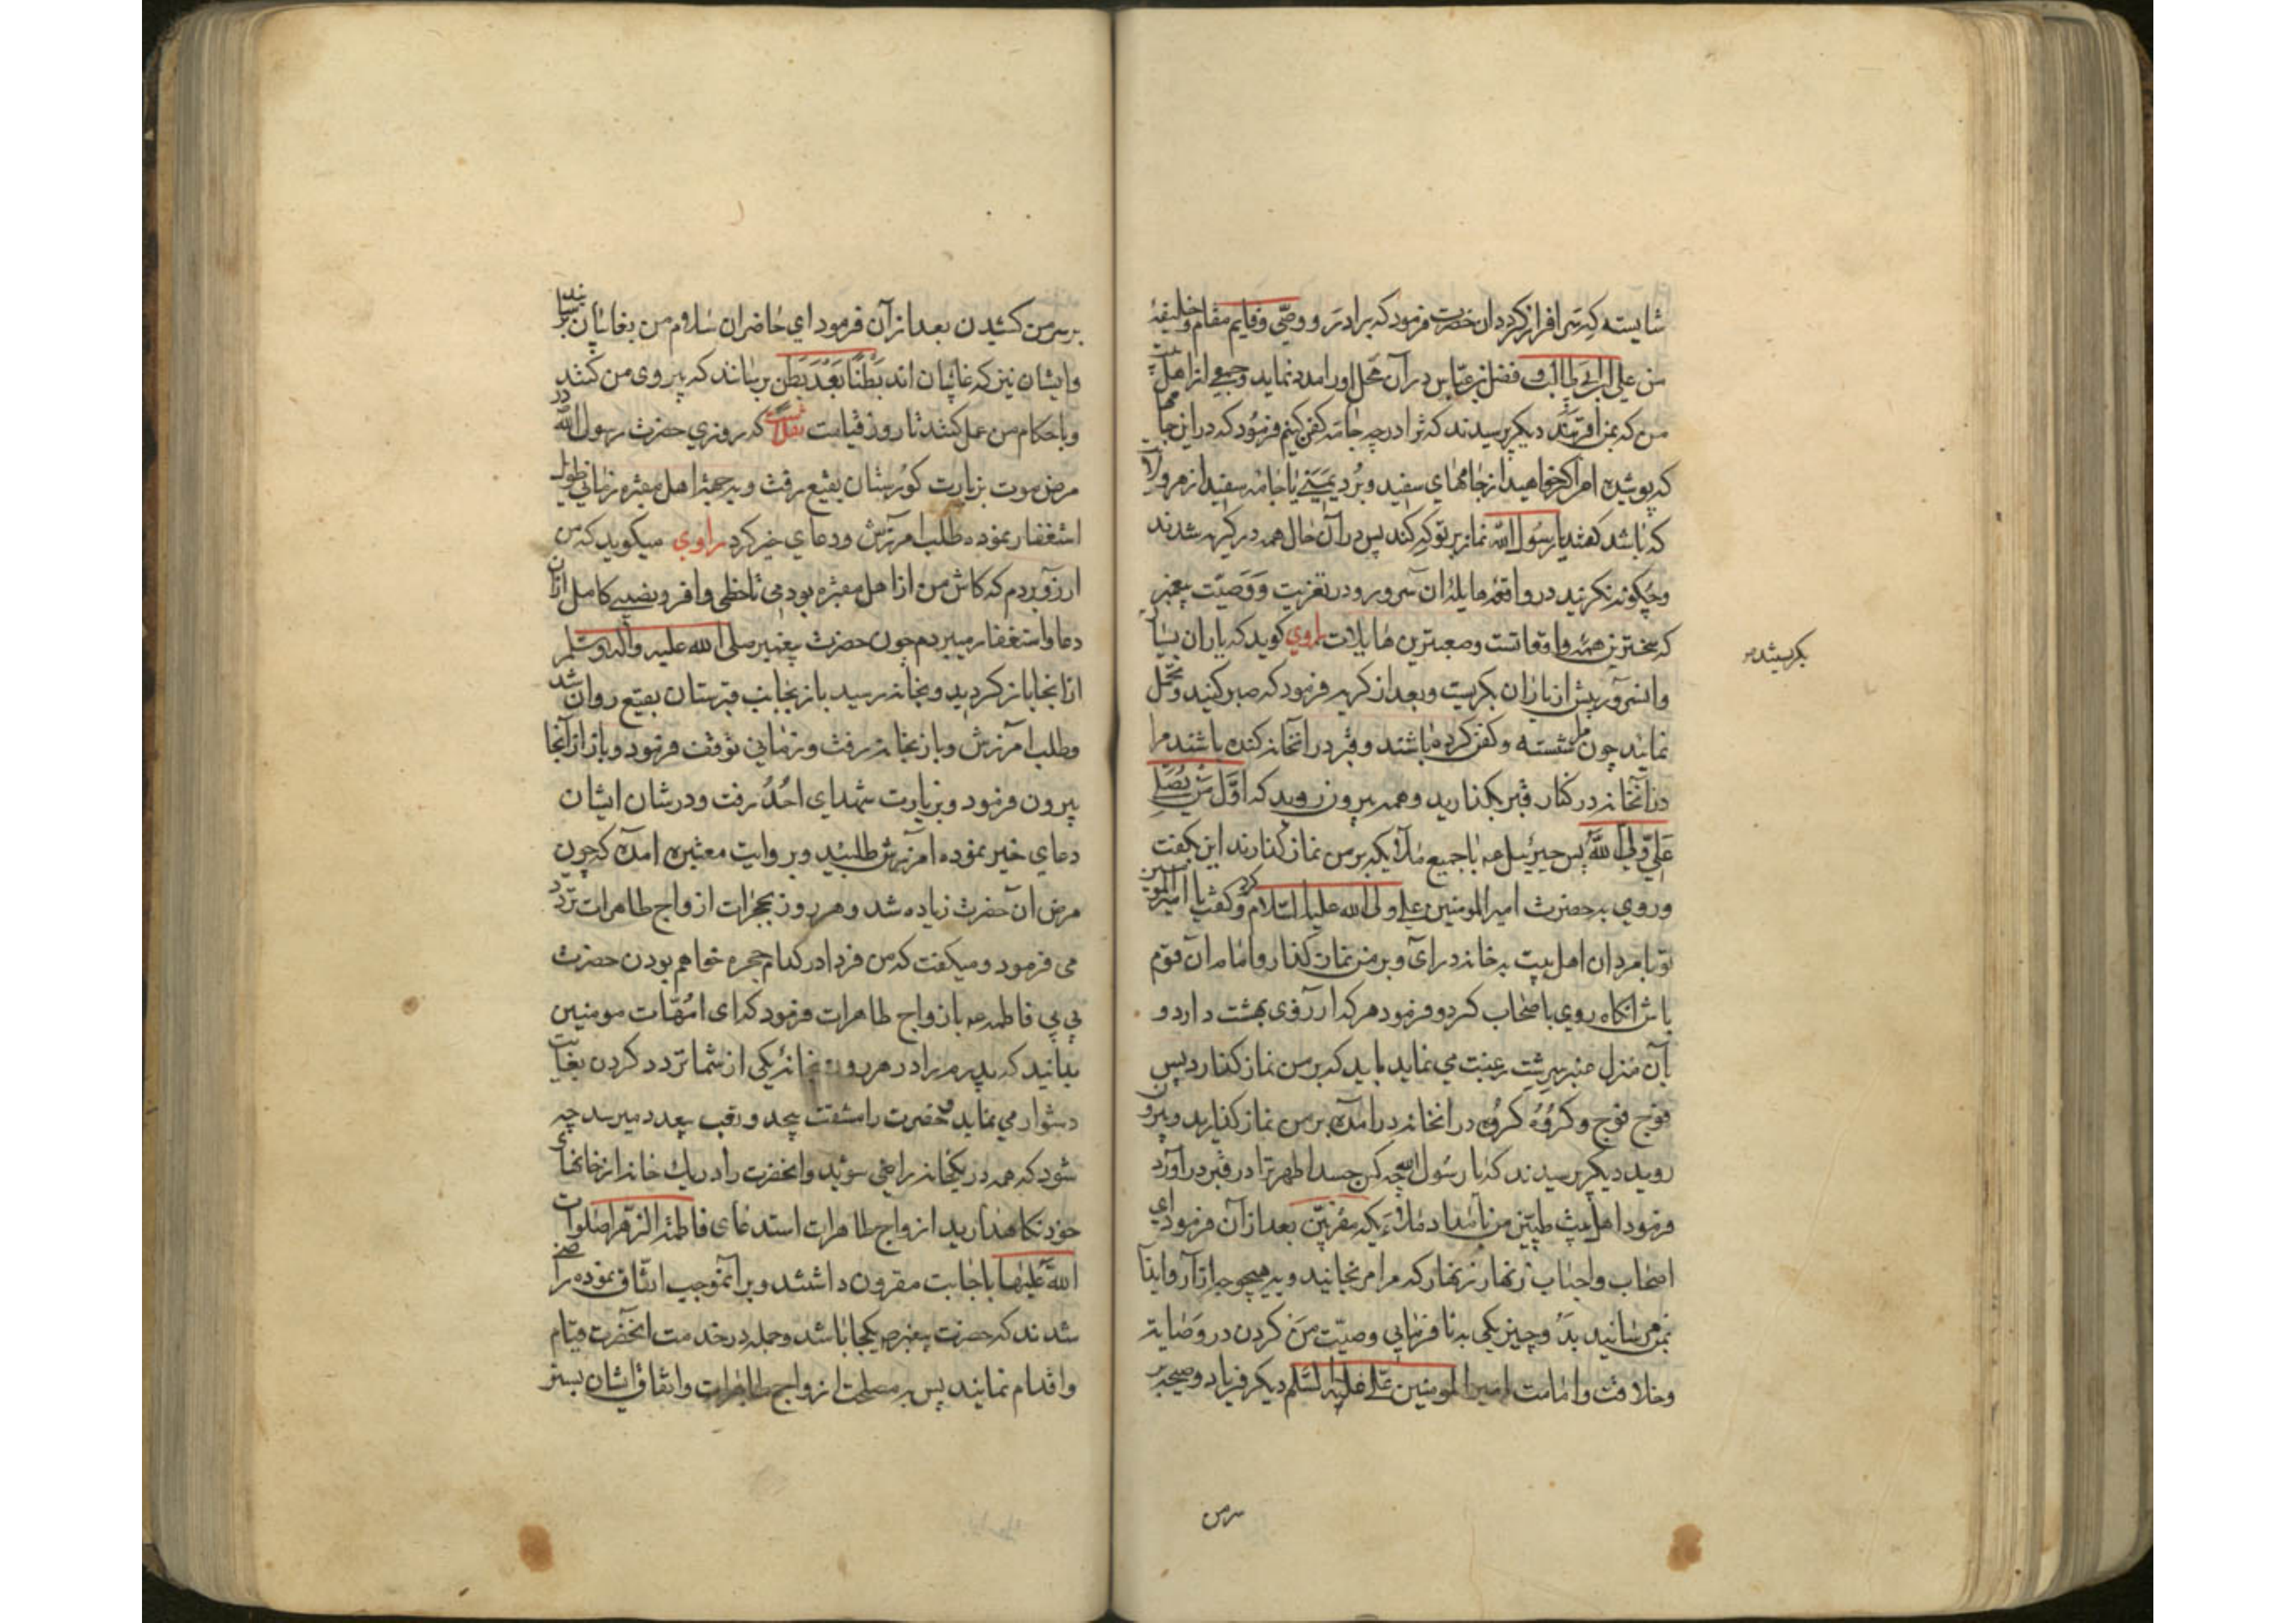 شایسته که سرافراز کردد ان حضرت فرمود که برادر و وصی و قایم مقام و خلیفهٔ
من علی ابن ابی طالب و فضل بن عباس در آن محل اورا مدد نماید و جمعی از اهل بیت
من که بمن اقربند دیکر پرسیدند که ترا در چه جامه کفن کنیم فرمود که در این جامها
که پوشیده ام اکر خواهید از جامهای سفید و برد یمنی یا جامه سفید از هر ولا
که باشد کفتند یا رسول الله نماز بر تو که کند پس در آن حال همه در کریه شدند
و چکونه نکریند در واقعه هایله ان سرور و در تعزیت و وصیت پیغمبر
که سختترین همه واقعاتست و صعبترین هایلات راوی کوید که یاران بسیار
بکریستند
وانسرور پیش از یاران بکریست و بعد از کریه فرمود که صبر کنید و تحمل
نمایند چون مرا شسته و کفن کرده باشند و قبر در آنخانه کنده باشند مرا
در آنخانه در کنار قبر بکذارید و همه بیرون روید که اول من یصلی
علی ولی الله پس جبرئیل عه با جمیع ملایکه بر من نماز کذارند این بکفت
و روی به حضرت امیر المومنین علی ولی الله علیه السلام کرد و کفت یا امیر المومنین
تو با مردان اهل بیت به خانه در آی و بر من نماز کذار و امام آن قوم
باش انکاه روی باصحاب کرد و فرمود هر که ارزوی بهشت دارد و
بآن منزل عنبر سرشت رغبت می نماید باید که بر من نماز کذارد پس
فوج فوج و کروه کروه در انخانه در آمده بر من نماز کذارید و بیرون
روید دیکر پرسیدند که یا رسول الله چه کس جسد اطهر ترا در قبر در آورد
فرمود اهل بیت طیبین من بامداد ملایکه مقربین بعد از آن فرمود ای
اصحاب و احباب زنهار زنهار که مرا مرنجانید و به هیچ وجه ازار و ایذا
بمن مرسانید بد و چیز یکی به نا فرمانی وصیت من کردن در وصایة
و خلافت و امامت امیر المومنین علی علیه السلم دیکر فریاد و صیحه بر
سر من
بر سر من کشیدن بعد از آن فرمود ای حاضران سلام من بغایبان برسانید
وایشان نیز که غایبان اند بطنا بعد بطن برسانند که پیروی من کنند
و باحکام من عمل کنند تا روز قیامت نقلست که روزی حضرت رسول الله در
مرض موت بزیارت کورستان بقیع رفت و به جهة اهل مقبره زمانی طویل
استغفار نموده طلب امرزش و دعای خیر کرد راوی میکوید که من
ارزو بردم که کاش من از اهل مقبره بودمی تا حظی وافر و نصیبی کامل از آن
دعا و استغفار میبردم چون حضرت پیغمبر صلی الله علیه و اله و سلم
از انجا باز کردید و بخانه رسید باز بجانب قبرستان بقیع روان شد
و طلب امرزش و باز بخانه رفت و زمانی توقف فرمود و باز از آنجا
بیرون فرمود و بزیارت شهدای احد رفت و در شان ایشان
دعای خیر نموده امرزش طلبید و بروایت معتبره آمده که چون
مرض ان حضرت زیاده شد و هر روز بحجرات ازواج طاهرات تردد
می فرمود و میکفت که من فردا در کدام حجره خواهم بودن حضرت
بی بی فاطمه عه بازواج طاهرات فرمود که ای امهات مومنین
بدانید که پدرم را در هر روز بخانه یکی از شما تردد کردن بغایت
دشوار می نماید و حضرت را مشقت بیحد و تعب بیعدد میرسد چه
شود که همه در یکخانه راضی شوید و انحضرت را در یک خانه از خانهای
خود نکاهدارید ازواج طاهرات استدعای فاطمة الزهرا صلوات
الله علیها باجابت مقرون داشتند و بر آنموجب اتفاق نموده راضی
شدند که حضرت پیغمبر ص یکجا باشد و جمله در خدمت انحضرت قیام
و اقدام نمایند پس به مصلحت ازواج طاهرات و اتفاق ایشان بستر